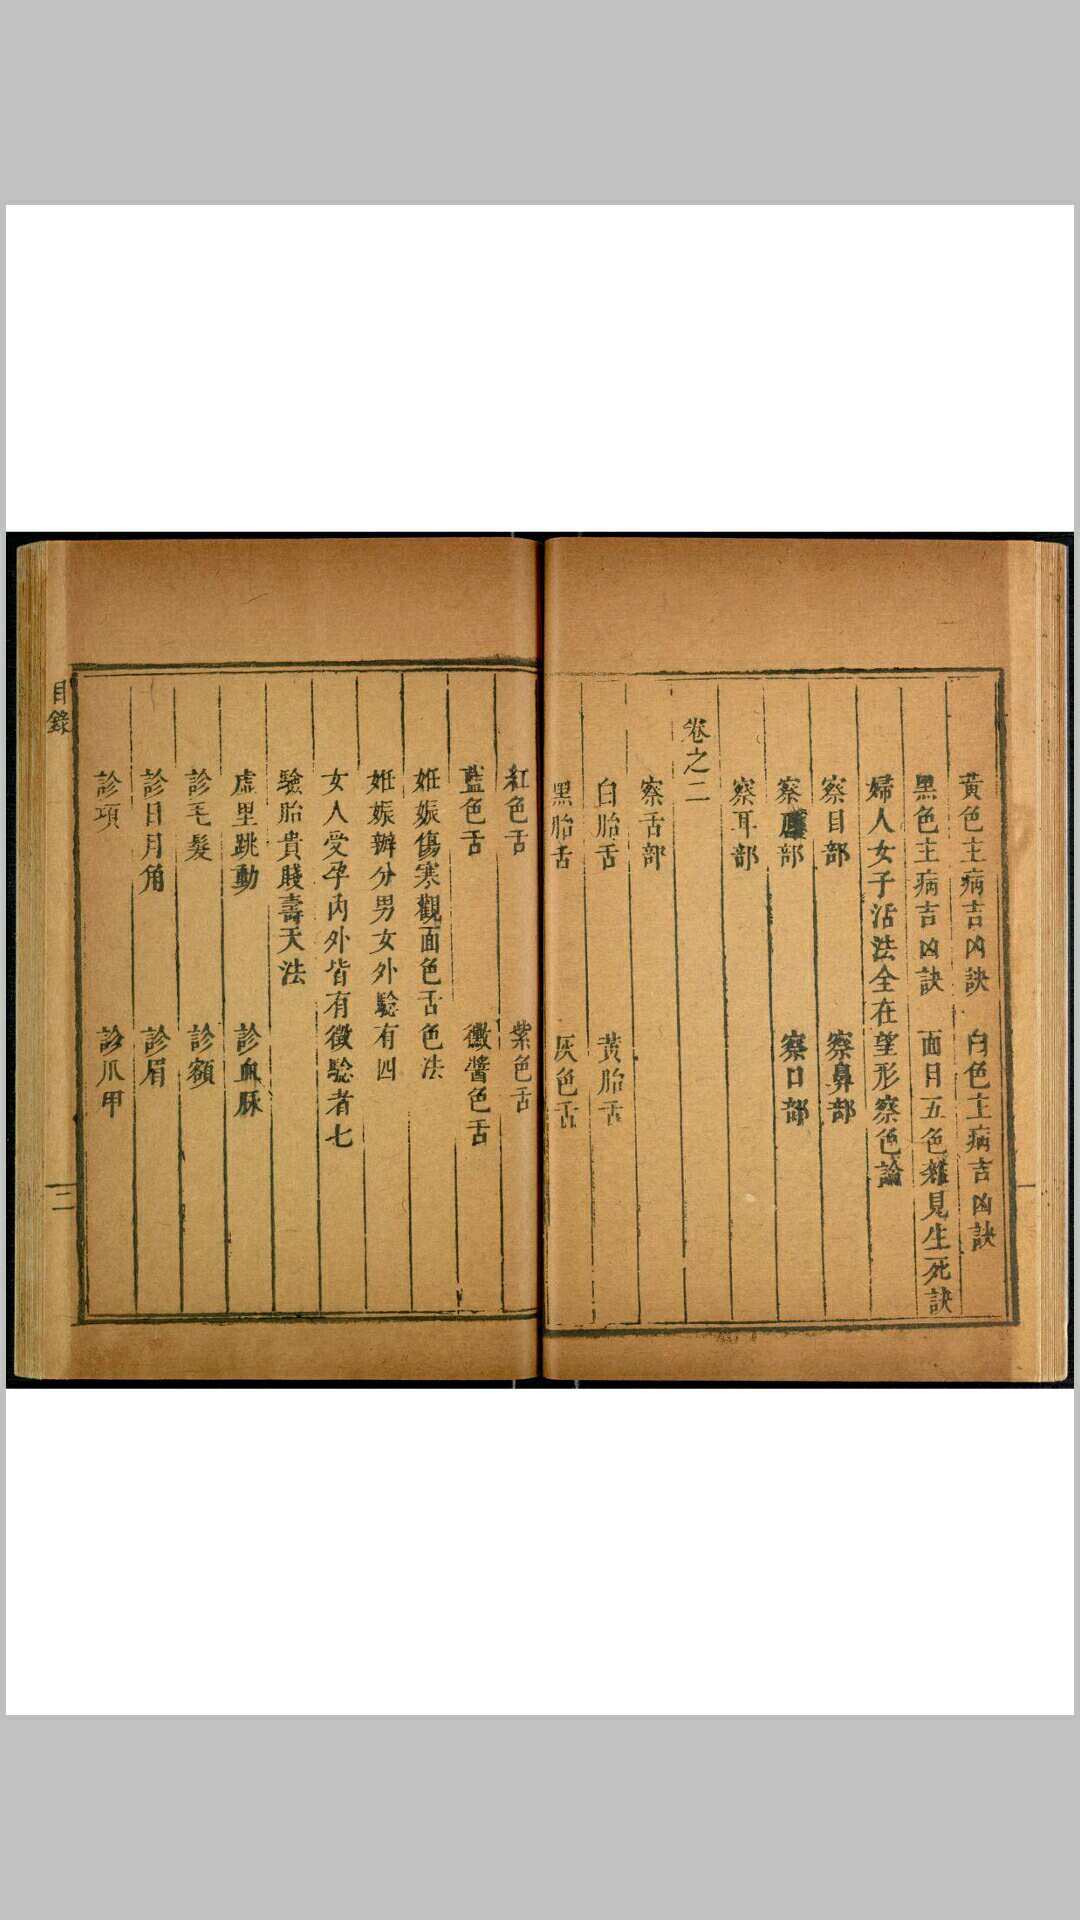 黃色主病吉凶訣　白色主病吉凶訣
黑色主病吉凶訣　面目五色雜見生死訣
婦人女子活法全在望形察色論
察目部　察鼻部
察部　察口部
察耳部
卷之二
察舌部
白胎舌　黃胎舌
黑胎舌　灰色舌
紅色舌　紫色舌
藍色舌　黴醬色舌
姙娠傷寒觀面色舌色法
姙娠辦分男女外騐有四
女人受孕內外皆有徵騐者七
驗胎貴賤壽夭法
虛里跳動　診血脉
診毛髮　診額
診日月角　診眉
診項　診爪甲
目錄
二